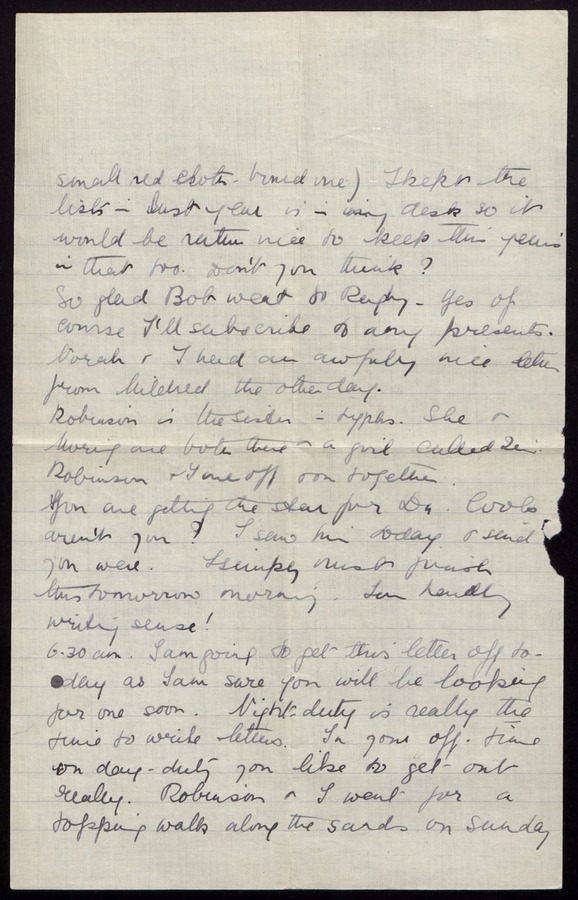 small red cloth-bound one) I kept the
lists in last year is in my desk so it
would be rather nice to keep this years
in that too. Don't you think?
So glad Bob went to Rugby - Yes of
course I'll subscribe to any presents.
Norah & I had an awfully nice letter
from Mildred the other day.
Robinson is the sister in typhs. She &
are both there & a girl called
Robinson & I are off together.
You are getting the star for Dr.
aren't you? I saw him today & said
you were. I simply must finish
this tomorrow morning. I am hardly
writing sense!
6.30 am. I am going to get this letter off to-
day as I am sure you will be looking
for one soon. Night-duty is really the
time to write letters. In your off-time
on day-duty you like to get out
really. Robinson & I went for a
topping walk along the sands on Sunday